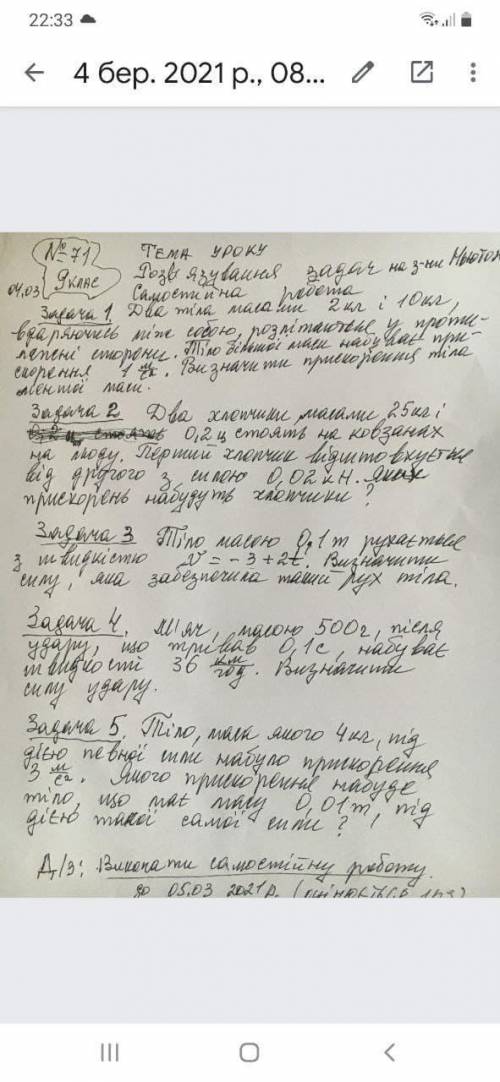 22:33
4 бер. 2021 р., 08...
№71 Тема уроку
9 клас Розв'язування задач на з-ни Ньютон
04.03 Самостійна робота
Задача 1. Два тіла масами 2кг і 10кг,
вдаряючись між собою, розлітаються у проти-
лежні сторони. Тіло більшої маси набуває при-
скорення 1 м/с². Визначити прискорення тіла
меншої маси.
Задача 2 Два хлопчики масами 25кг і
0,2 ц стоять на ковзанах
на льоду. Перший хлопчик відштовхується
від другого з силою 0,02 кН. Яких
прискорень набудуть хлопчики?
Задача 3 Тіло масою 0,1т рухається
з швидкістю V = -3 + 2t. Визначити
силу, яка забезпечила такий рух тіла.
Задача 4. М'яч, масою 500г, після
удару, що тривав 0,1с, набуває
швидкості 36 км/год. Визначити
силу удару.
Задача 5. Тіло, маса якого 4кг, під
дією певної сили набуло прискорення
3 м/с². Якого прискорення набуде
тіло, що має масу 0,01т, під
дією такої самої сили?
Д/з: Виконати самостійну роботу.
до 05.03 2021р. (оцінюється